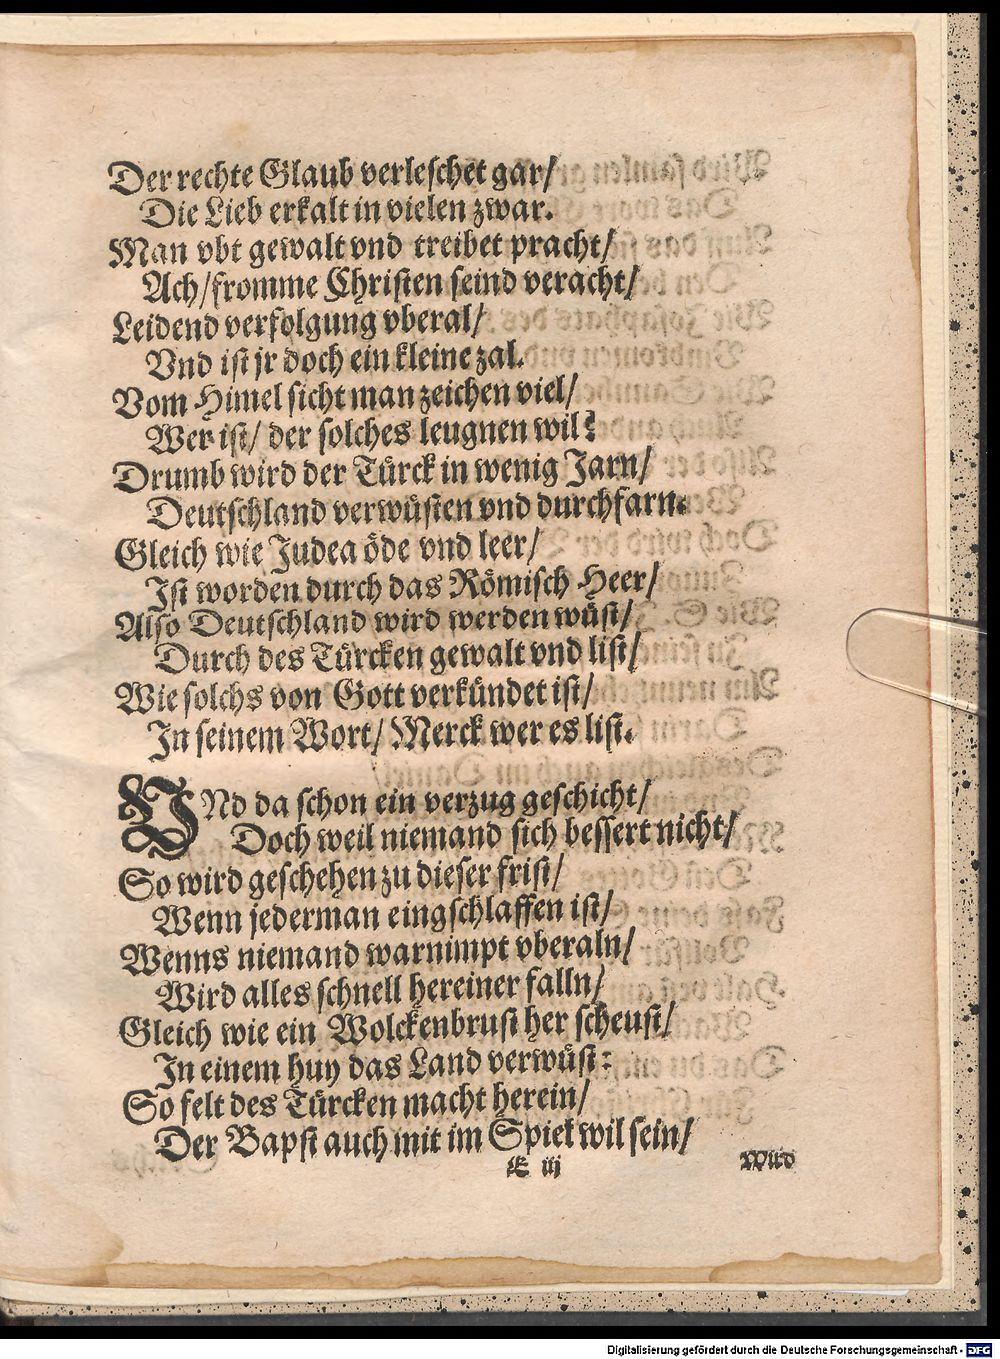 Der rechte Glaub verleschet gar/
Die Lieb erkalt in vielen zwar.
Man vbt gewalt vnd treibet pracht/
Ach/fromme Christen seind veracht/
Leidend verfolgung vberal/
Vnd ist jr doch ein kleine zal.
Vom Himel sicht man zeichen viel/
Wer ist/ der solches leugnen wil?
Drumb wird der Türck in wenig Jarn/
Deutschland verwüsten vnd durchfarn.
Gleich wie Judea öde vnd leer/
Ist worden durch das Römisch Heer/
Also Deutschland wird werden wüst/
Durch des Türcken gewalt vnd list/
Wie solchs von Gott verkündet ist/
In seinem Wort/ Merck wer es list.
VNd da schon ein verzug geschicht/
Doch weil niemand sich bessert nicht/
So wird geschehen zu dieser frist/
Wenn jederman eingschlaffen ist/
Wenns niemand warnimpt vberaln/
Wird alles schnell hereiner falln/
Gleich wie ein Wolckenbrust her scheust/
In einem huy das Land verwüst:
So felt des Türcken macht herein/
Der Bapst auch mit im Spiel wil sein/
E iij
Wird
Digitalisierung gefördert durch die Deutsche Forschungsgemeinschaft - DFG